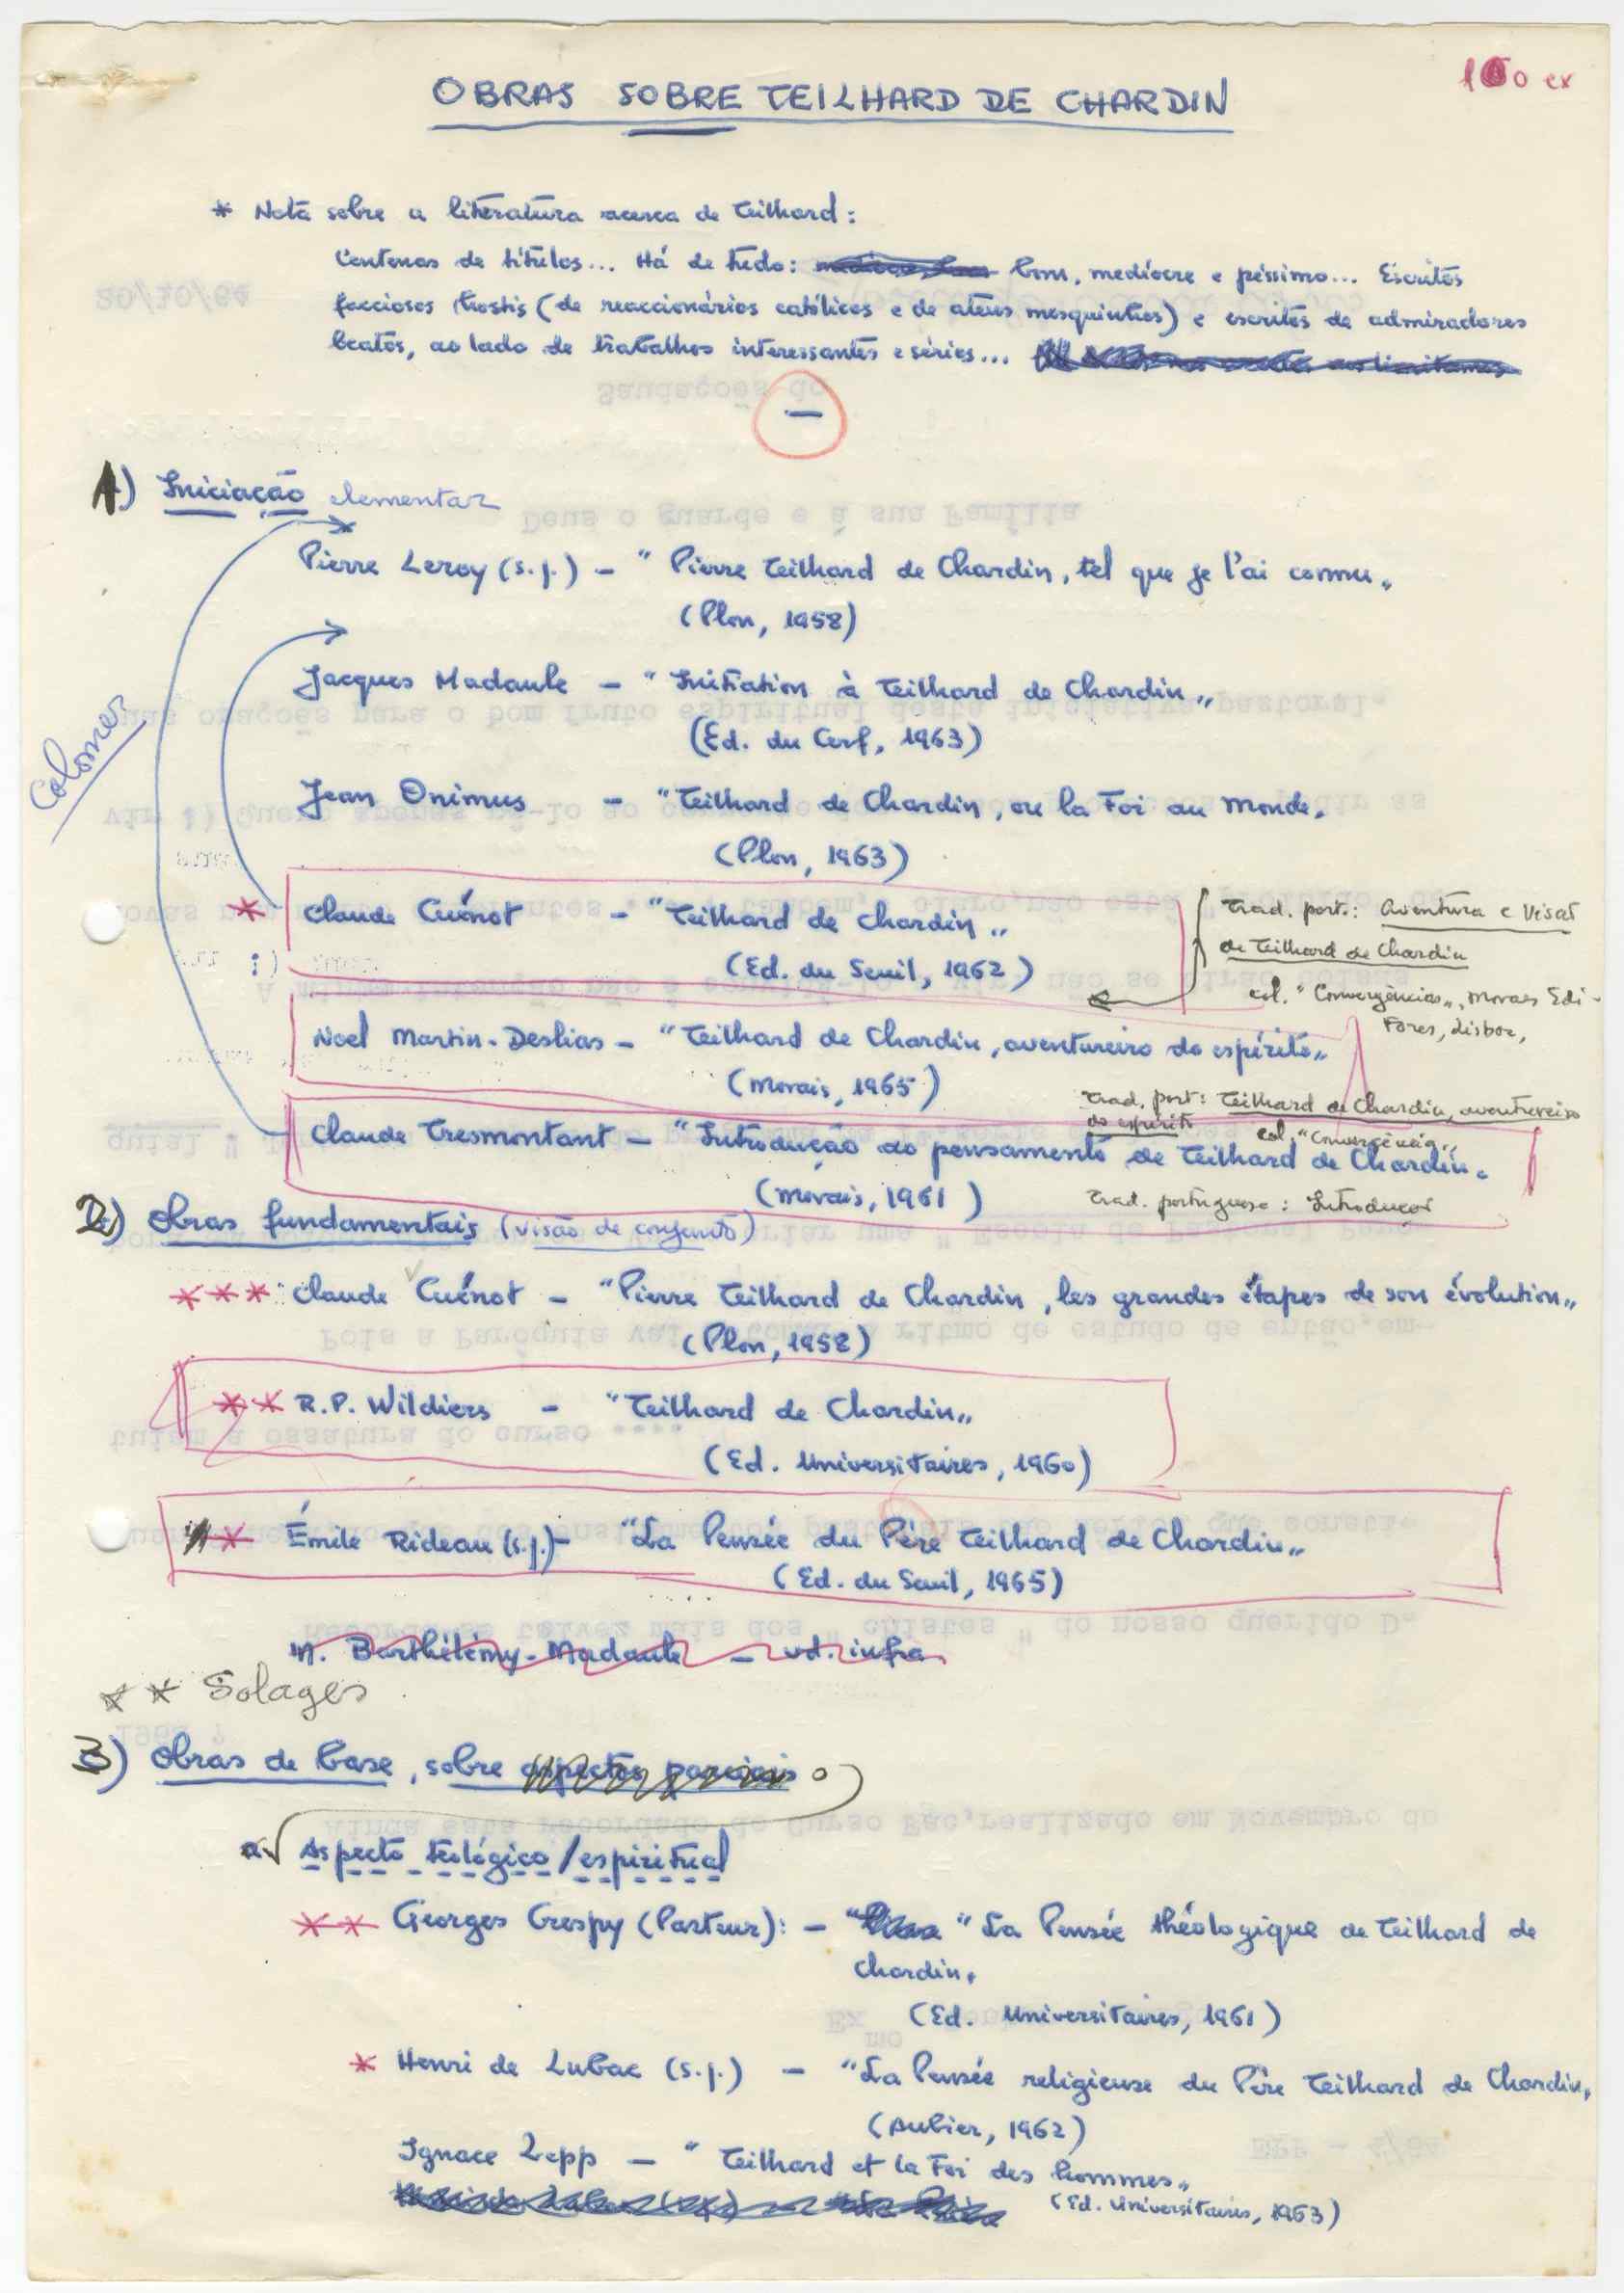 100 ex
OBRAS SOBRE TEILHARD DE CHARDIN
* Nota sobre a literatura acerca de Teilhard:
Centenas de títulos... Há de tudo: bom, medíocre e péssimo... Escritos
facciosos hostis (de reaccionários católicos e de ateus mesquinhos) e escritos de admiradores
beatos, ao lado de trabalhos interessantes e sérios...
—
1) Iniciação elementar
Pierre Leroy (s.j.) - "Pierre Teilhard de Chardin, tel que je l'ai connu"
(Plon, 1958)
Jacques Madaule - "Initiation à Teilhard de Chardin"
(Ed. du Cerf, 1963)
Colomer
Jean Onimus - "Teilhard de Chardin, ou la Foi au monde"
(Plon, 1963)
* Claude Cuénot - "Teilhard de Chardin"
(Ed. du Seuil, 1962)
Trad. port.: Aventura e Visão
de Teilhard de Chardin
col. "Convergências", Moraes Edi-
tores, Lisboa,
Noel Martin-Deslias - "Teilhard de Chardin, aventureiro do espírito"
(Morais, 1965)
Trad. port: Teilhard de Chardin, aventureiro
do espírito col. "Convergência"
Claude Tresmontant - "Introdução ao pensamento de Teilhard de Chardin"
(Morais, 1961)
Trad. portuguesa: Introduçao
2) Obras fundamentais (visão de conjunto)
*** Claude Cuénot - "Pierre Teilhard de Chardin, les grandes étapes de son évolution"
(Plon, 1958)
** R.P. Wildiers - "Teilhard de Chardin"
(Ed. Universitaires, 1960)
** Émile Rideau (s.j.) - "La Pensée du Père Teilhard de Chardin"
(Ed. du Seuil, 1965)
M. Barthélemy-Madaule - vd. infra
** Solages
3) Obras de base, sobre aspectos parciais o
a Aspecto teológico/espiritual
** Georges Crespy (Pasteur): - "La Pensée théologique de Teilhard de
Chardin"
(Ed. Universitaires, 1961)
* Henri de Lubac (s.j.) - "La Pensée religieuse du Père Teilhard de Chardin"
(Aubier, 1962)
Ignace Lepp - "Teilhard et la Foi des hommes"
(Ed. Universitaires, 1963)